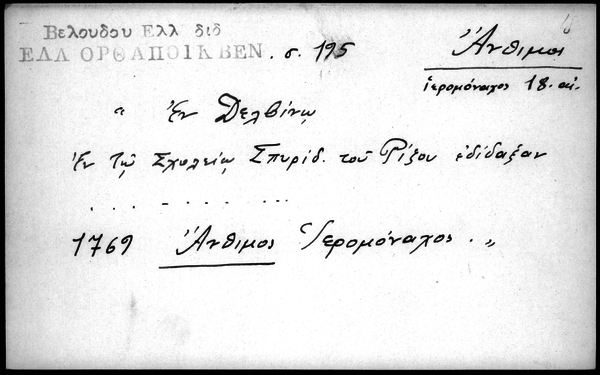 Βελουδου Ελλ διδ
ΕΛΛ ΟΡΘ ΑΠΟΙΚ ΒΕΝ . σ. 195
Ἄνθιμος
ἱερομόναχος 18. αἰ.
" Ἐν Δελβίνῳ
Ἐν τῷ Σχολείῳ Σπυρίδ. τοῦ Ρίζου ἐδίδαξαν
. . . - . . . . . .
1769 Ἄνθιμος Ἱερομόναχος . "